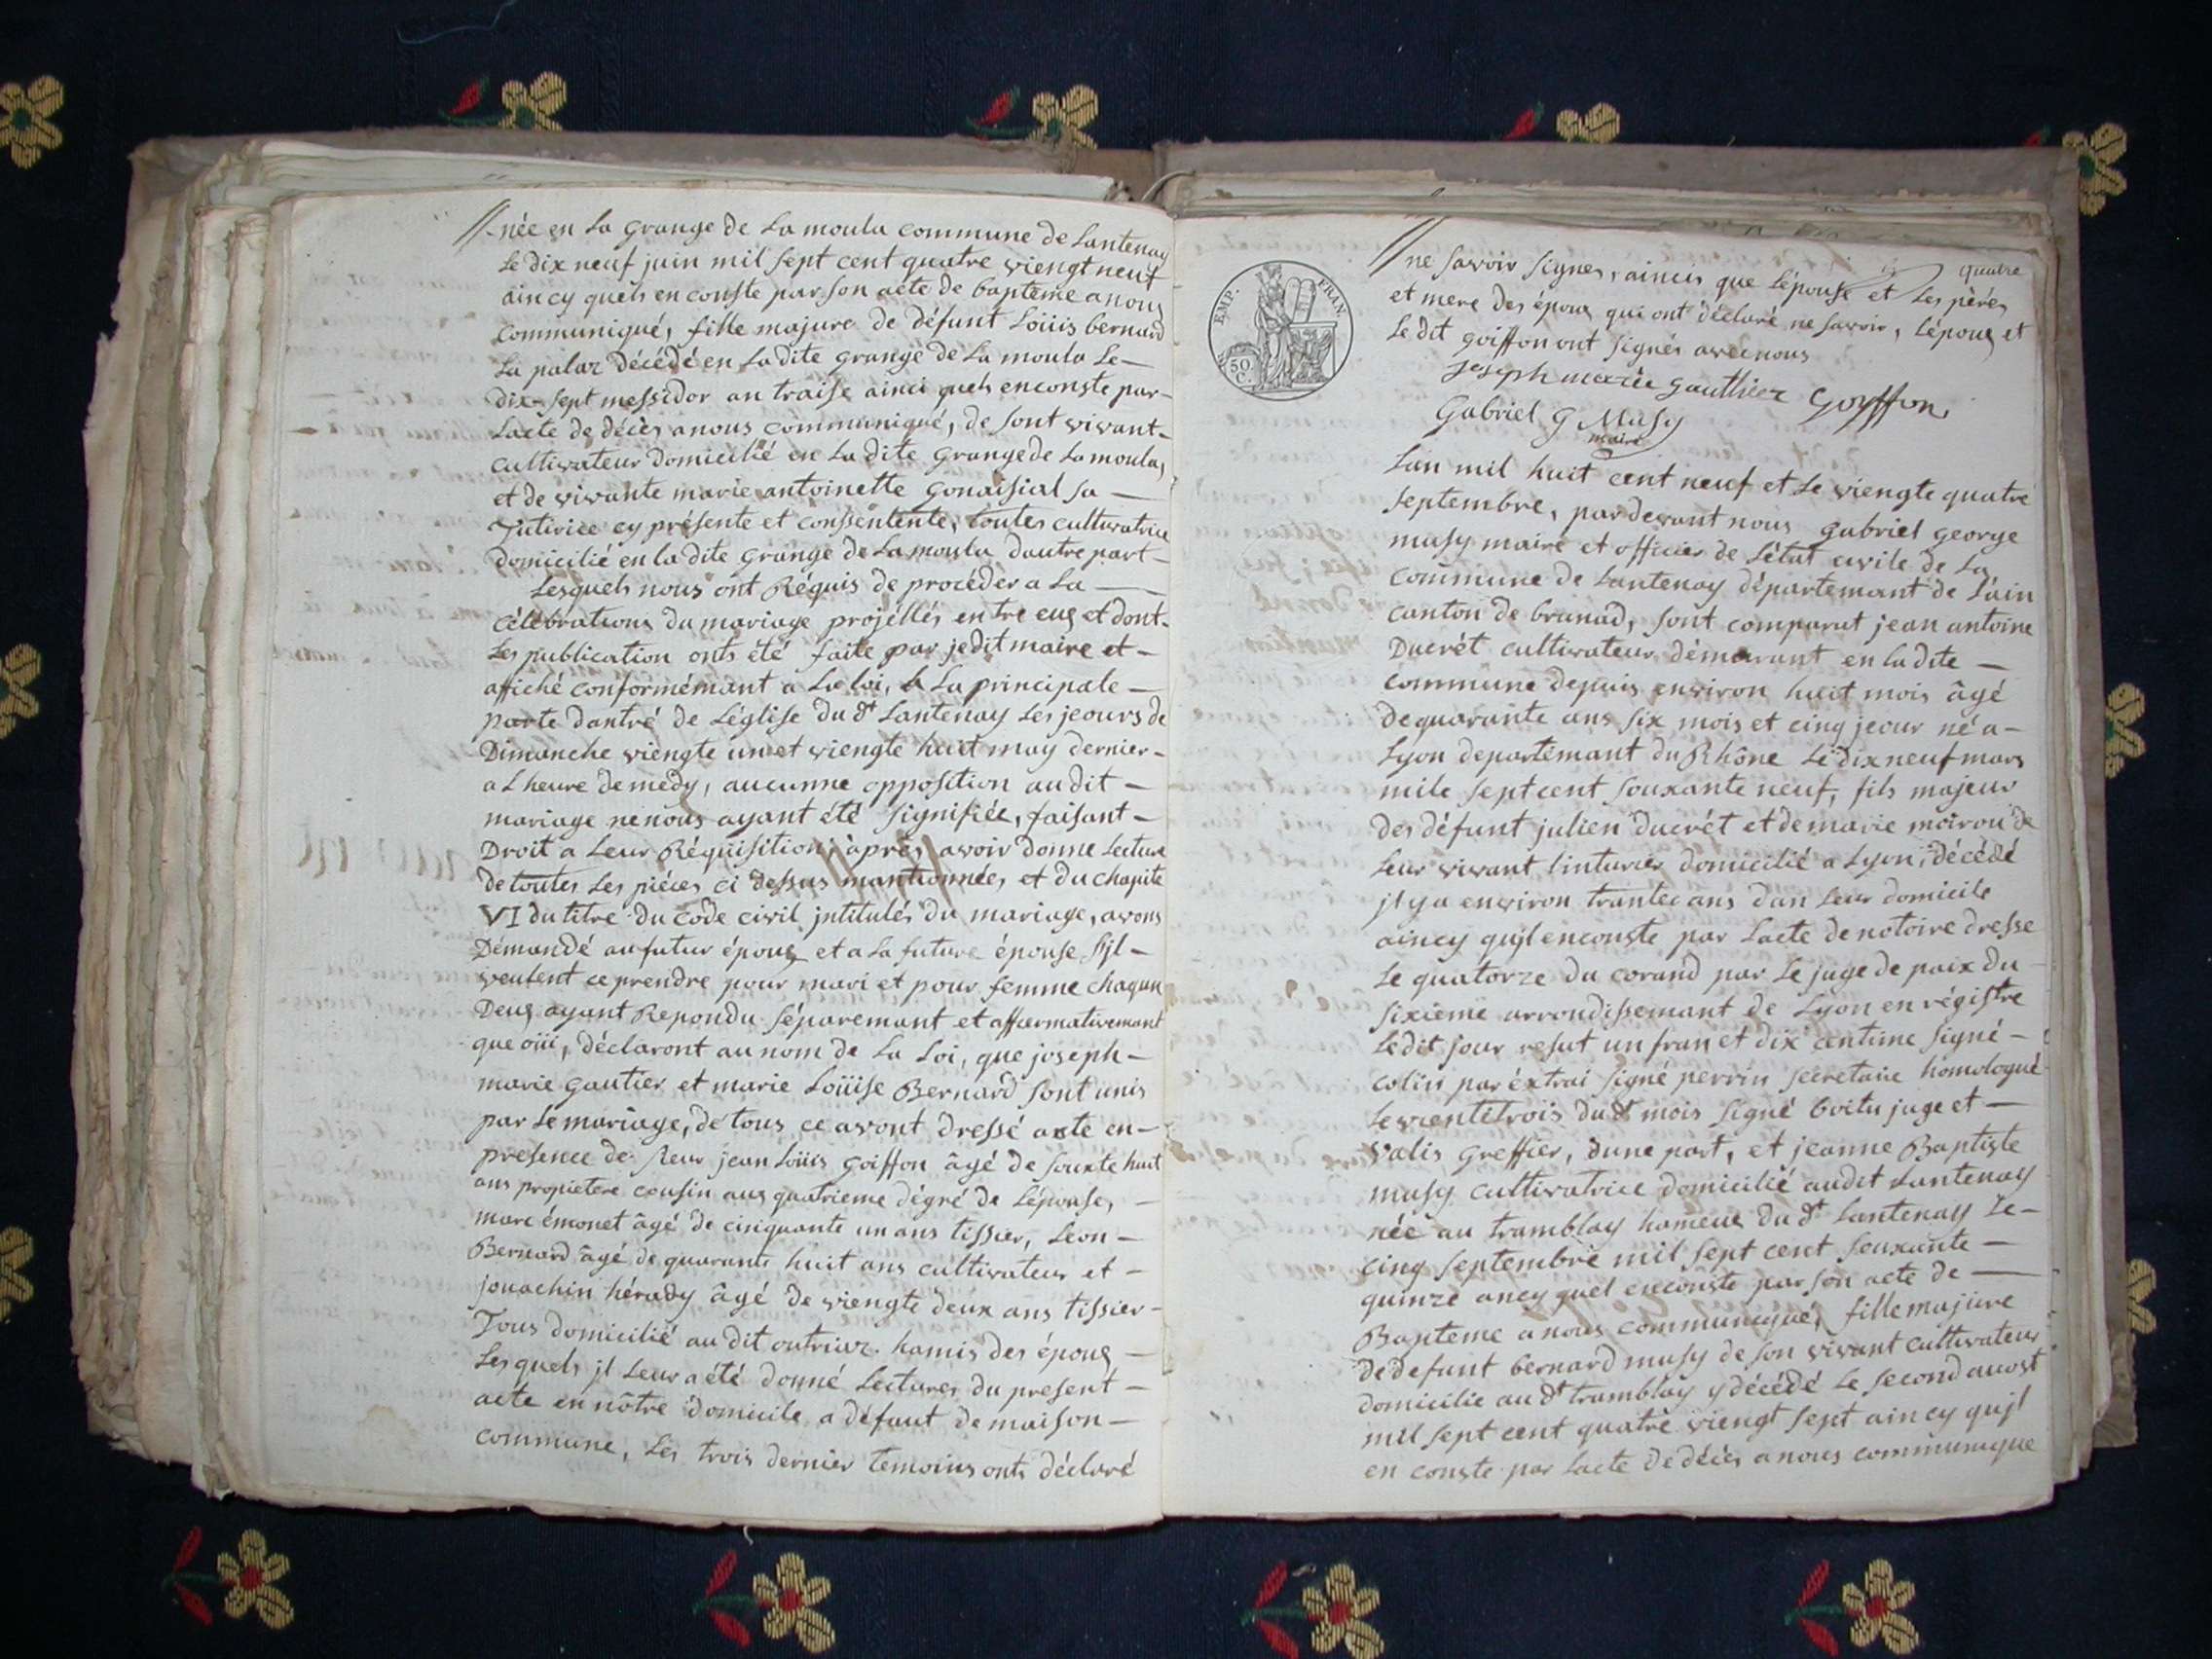 née en La grange de La moula commune de Lantenay
Le dix neuf juin mil sept cent quatre viengt neuf
aincy quels en conste par son acte de bapteme a nous
communiqué, fille majure de défunt Loüis bernard
La palaz décédé en La dite grange de La moula Le
dix-sept messidor an traise ainci quels en conste par
Lacte de décès a nous communiqué, de sont vivant
cultivateur domicilié en La dite grange de La moula,
et de vivante marie antoinette gonaisial sa
Tutirice cy présente et conssentente, toutes cultivatrice
domicilié en la dite grange de La moula dautre part
Lesquels nous ont Réquis de procéder a La
célébrations du mariage projéllés entre eux et dont
Les publication onts été faite par jedit maire et
affiché conformémant a La loi, à La principale
porte dantré de Léglise du dt Lantenay Les jeours de
Dimanche viengte un et viengte huit may dernier
a Lheure de medy, aucunne opposition au dit
mariage ne nous ayant été signifiée, faisant
Droit a Leur Réquisition, après avoir donne Lecture
de toutes Les piéces ci dessus mantionnées et du chapite
VI du titre du code civil jntitulés du mariage, avons
Démandé au futur époux et a La future épouse sjl
veulent ce prendre pour mari et pour femme chaqun
Deux ayant Repondu séparemant et affiermativemant
que oüi, déclaront au nom de La Loi, que joseph
marie gautier et marie Loüise Bernard sont unis
par Le mariage, de tous ce avont dressé acte en
présence de sieur jean Loüis goiffon âgé de souxte huit
ans propietere cousin aux quatrieme dégré de Lépouse,
marc émonet âgé de cinquante un ans tissier, Léon
Bernard âgé de quarante huit ans cultivateur et
jouachin hérady âgé de viengte deux ans tissier
Tous domicilié au dit outriaz hamis des époux
Lesquels jl Leur a été donné Lectures du present
acte en nôtre domicile a défaut de maison
commune, Les trois dernier temoins onts déclaré
quatre
ne savoir signer, aincis que Lépouse et Les pères
et mere des époux qui ont déclaré ne savoir, Lépoux et
Le dit goiffon ont signés avec nous
EMP. FRAN.
50 C.
joseph marie gauthier Goyffon
Gabriel G Musy
maire
Lan mil huit cent neuf et Le viengte quatre
septembre, pardevant nous gabriel george
musy maire et officier de Létat civile de La
commune de Lantenay départemant de Lain
canton de brenad, sont comparut jean antoine
Ducrét cultivateur démeurant en la dite
commune depuis environ huit mois âgé
de quarante ans six mois et cinq jeour né a
Lyon departemant du Rhône Le dix neuf mars
mile sept cent souxante neuf, fils majeur
des défunt julien ducrét et de marie moirou de
Leur vivant tinturier domicilié a Lyon, décédé
jl y a environ trantes ans dan Leur domicile
aincy qujl en conste par Lacte de notoire dresse
Le quatorze du corand par Le juge de paix du
sixieme arrondissemant de Lyon en régistre
Ledit jour resut un fran et dix centime signé
colin par éxtrai signé perrin secretaire homologué
Le vientetrois du dt mois signé boitu juge et
valis greffier, dune part, et jeanne Baptiste
musy cultivatrice domicilié au dit Lantenay
née au tramblay hameux du dt Lantenay Le
cinq septembre mil sept cent souxante
quinze aincy quel en conste par son acte de
Bapteme a nous communiqué, fille majure
de defunt bernard musy de son vivant cultivateur
domicilie au dt tramblay y décédé Le second auost
mil sept cent quatre viengt sept aincy qujl
en conste par Lacte de décès a nous communique